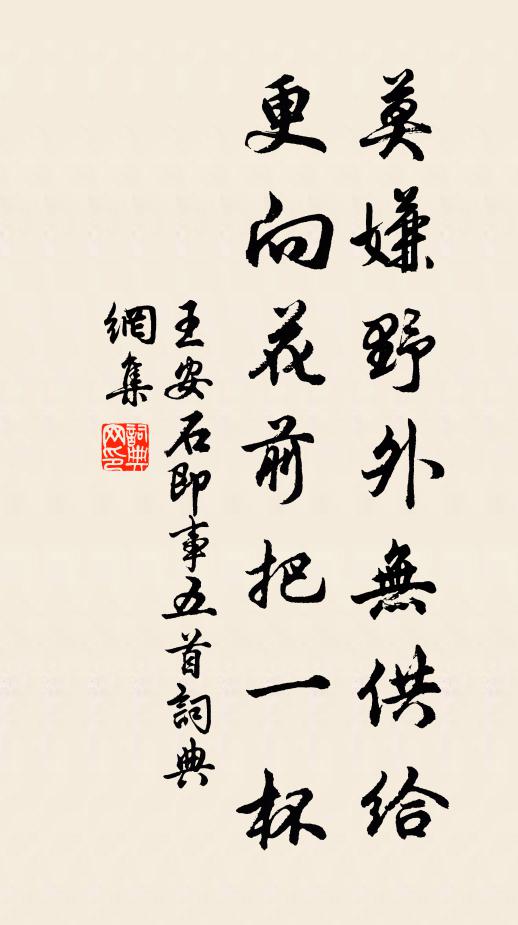 莫嫌野外無供給
更向花前把一杯
王安石即事五首詞典
網集
詞典
网印